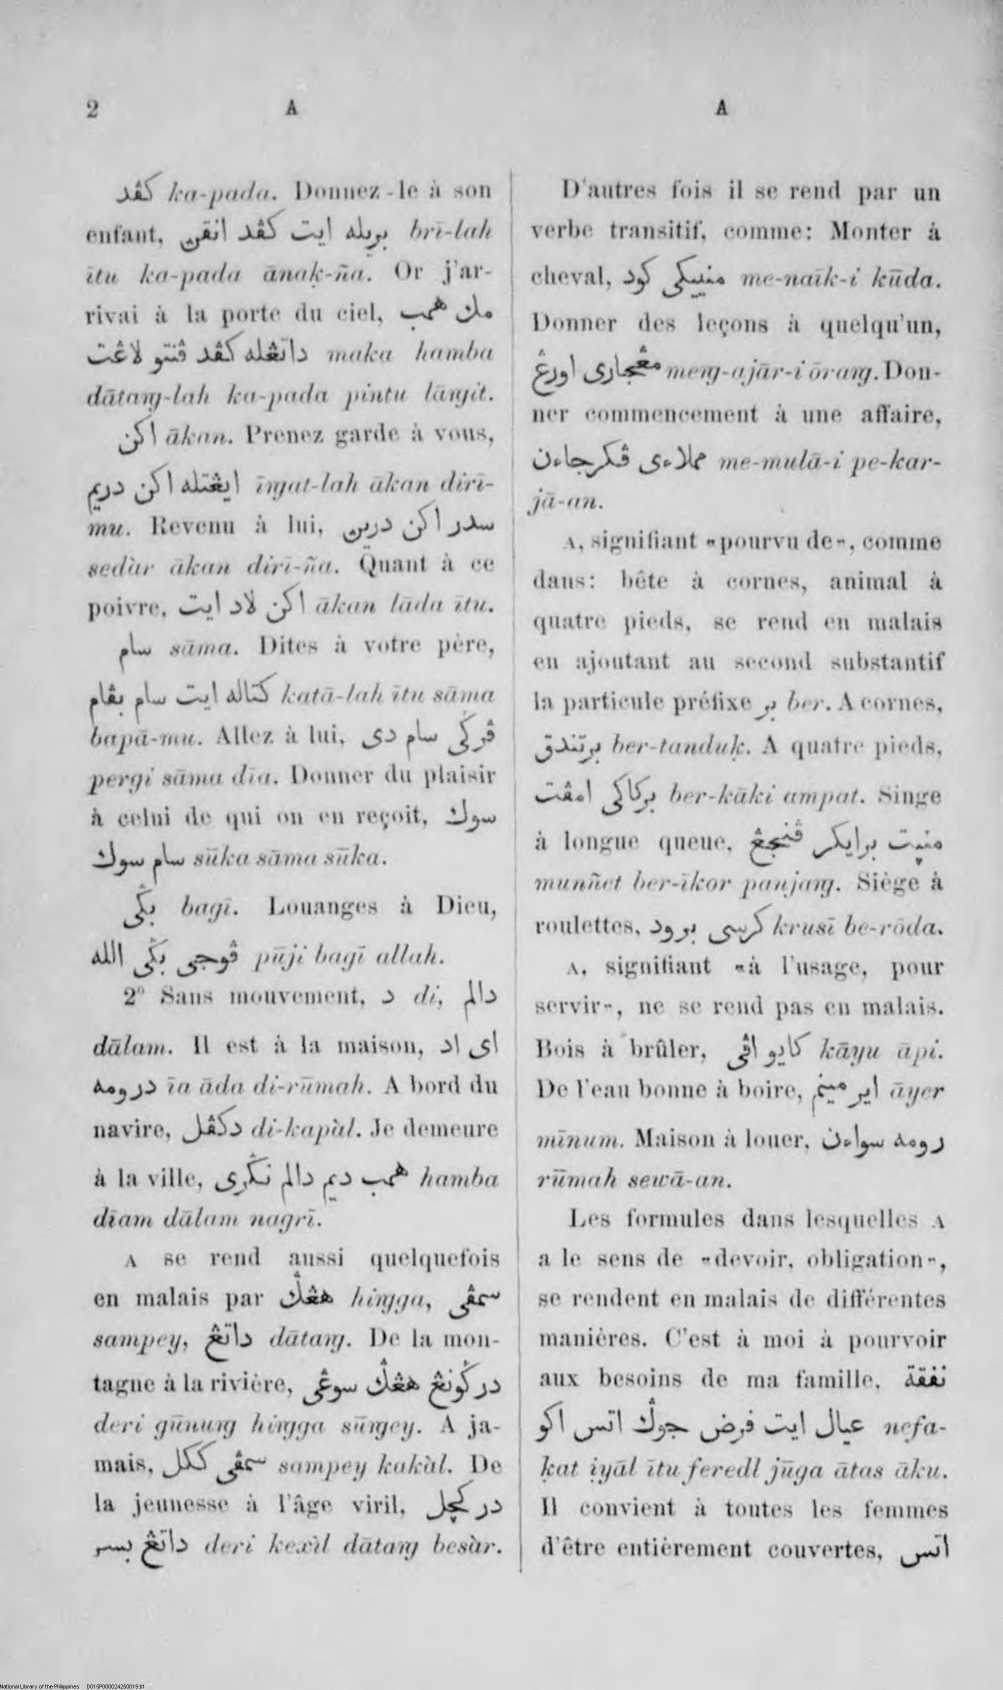 2
A
A
کڤد ka-pada. Donnez-le à son
enfant, بريله ايت کڤد انقڽ brī-lah
ītu ka-pada ānaḳ-ña. Or j'ar-
rivai à la porte du ciel, مك همب
داتڠله کڤد ڤنتو لاڠت maka hamba
dātaṃg-lah ka-pada pintu lāṃgit.
اکن ākan. Prenez garde à vous,
ايڠتله اکن دريم īṃgat-lah ākan dirī-
mu. Revenu à lui, سدر اکن دريڽ
sedàr ākan dirī-ña. Quant à ce
poivre, اکن لاد ايت ākan lāda ītu.
سام sāma. Dites à votre père,
کتاله ايت سام بڤام katā-lah ītu sāma
bapā-mu. Allez à lui, ڤرݢي سام دى
pergi sāma dīa. Donner du plaisir
à celui de qui on en reçoit, سوك
سام سوك sūka sāma sūka.
بݢى bagī. Louanges à Dieu,
ڤوجى بݢى الله pūji bagī allah.
2° Sans mouvement, د di, دالم
dālam. Il est à la maison, اى اد
درومه īa āda di-rūmah. A bord du
navire, دکڤل di-kapàl. Je demeure
à la ville, همب ديم دالم نݢرى hamba
dīam dālam nagrī.
A se rend aussi quelquefois
en malais par هڠݢ hiṃgga, سمڤى
sampey, داتڠ dātaṃg. De la mon-
tagne à la rivière, در ݢونڠ هڠݢ سوڠى
deri gūnuṃg hiṃgga sūṃgey. A ja-
mais, سمڤى ککل sampey kakàl. De
la jeunesse à l'âge viril, در کچل
داتڠ بسر deri kexìl dātaṃg besàr.
D'autres fois il se rend par un
verbe transitif, comme: Monter à
cheval, منييکى کود me-naīk-i kūda.
Donner des leçons à quelqu'un,
مڠجارى اورڠ meṃg-ajār-i ōraṃg. Don-
ner commencement à une affaire,
مملاءى ڤکرجاءن me-mulā-i pe-kar-
jā-an.
A, signifiant «pourvu de», comme
dans: bête à cornes, animal à
quatre pieds, se rend en malais
en ajoutant au second substantif
la particule préfixe بر ber. A cornes,
برتندق ber-tanduḳ. A quatre pieds,
برکاکى امڤت ber-kāki ampat. Singe
à longue queue, منيت برايکر ڤنجڠ
munñet ber-īkor panjaṃg. Siège à
roulettes, کرسى برود krusī be-rōda.
A, signifiant «à l'usage, pour
servir», ne se rend pas en malais.
Bois à brûler, کايو اڤى kāyu āpi.
De l'eau bonne à boire, اير مينم āyer
mīnum. Maison à louer, رومه سواءن
rūmah sewā-an.
Les formules dans lesquelles A
a le sens de «devoir, obligation»,
se rendent en malais de différentes
manières. C'est à moi à pourvoir
aux besoins de ma famille, نفقة
عيال ايت فرض جوݢ اتس اکو nefa-
ḳat iyāl ītu feredl jūga ātas āku.
Il convient à toutes les femmes
d'être entièrement couvertes, اتس
National Library of the Philippines